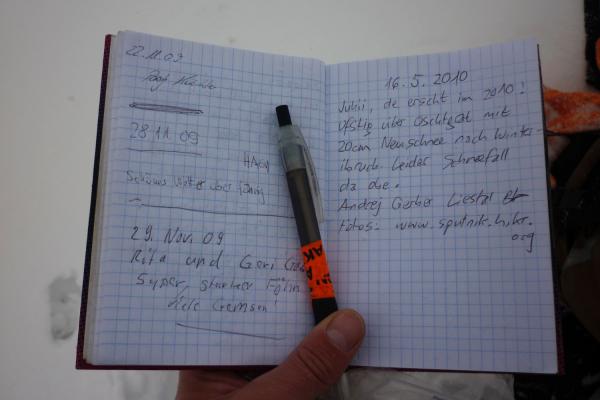 22.11.09
28.11.09
29. Nov. 09
Rita und Geri
Super, starker Föhn
Viele Gemsen!
16.5.2010
Juhii, de erscht im 2010!
Ufstig über Oschtgrat mit
20cm Neuschnee nach Winter-
ibruch. Leider Schneefall
da obe.
Andrej Gerber Liestal
Fotos: www.sputnik.hikr.
org